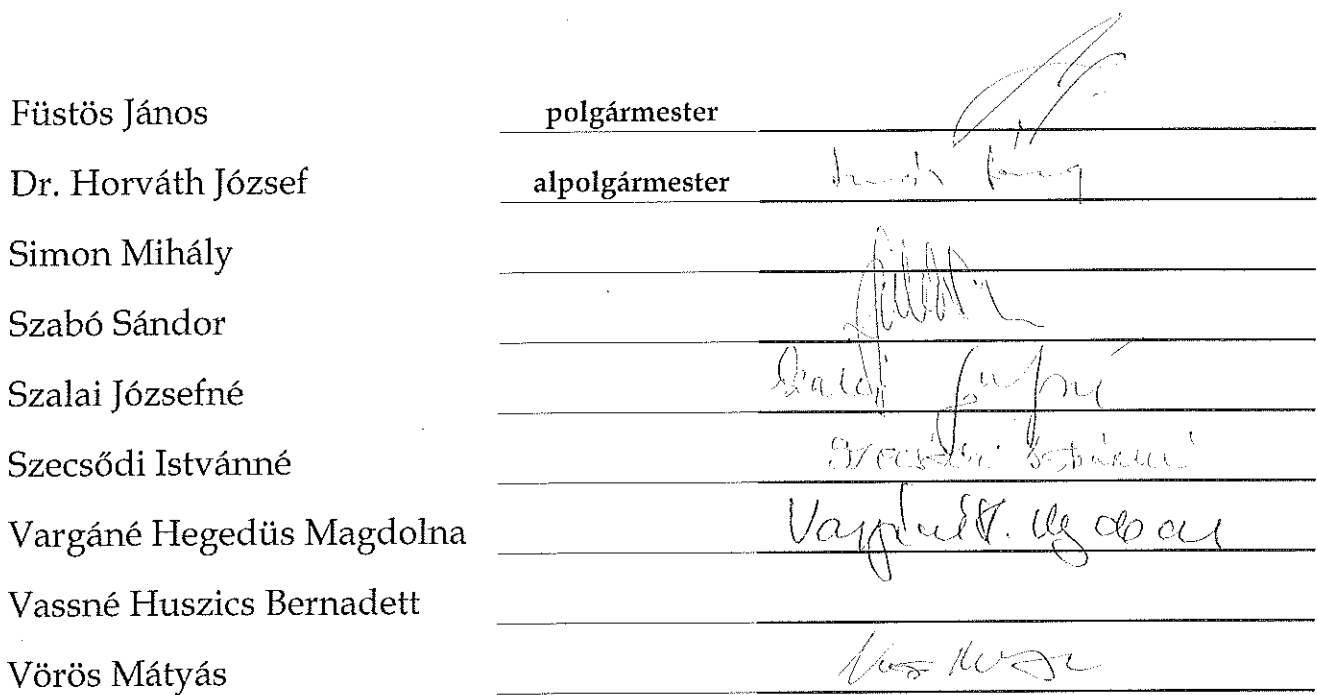 Füstös János polgármester
Dr. Horváth József alpolgármester
Simon Mihály
Szabó Sándor
Szalai Józsefné
Szecsődi Istvánné
Vargáné Hegedüs Magdolna
Vassné Huszics Bernadett
Vörös Mátyás